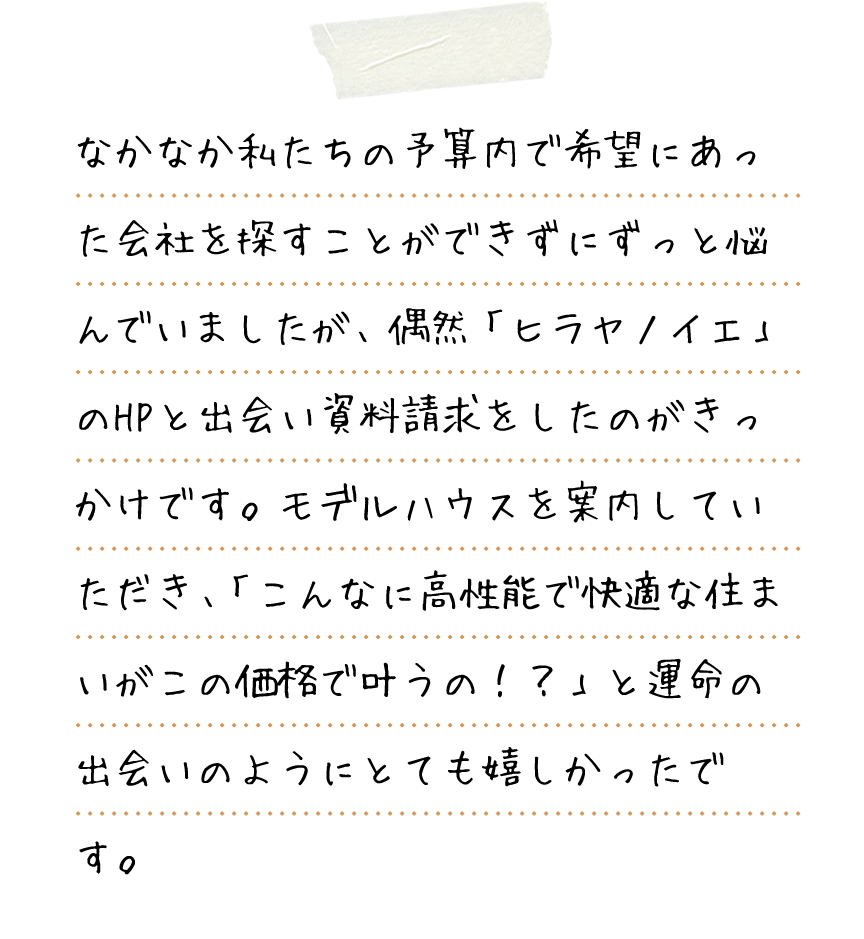 なかなか私たちの予算内で希望にあっ
た会社を探すことができずにずっと悩
んでいましたが、偶然「ヒラヤノイエ」
のHPと出会い資料請求をしたのがきっ
かけです。モデルハウスを案内してい
ただき、「こんなに高性能で快適な住ま
いがこの価格で叶うの！？」と運命の
出会いのようにとても嬉しかったで
す。